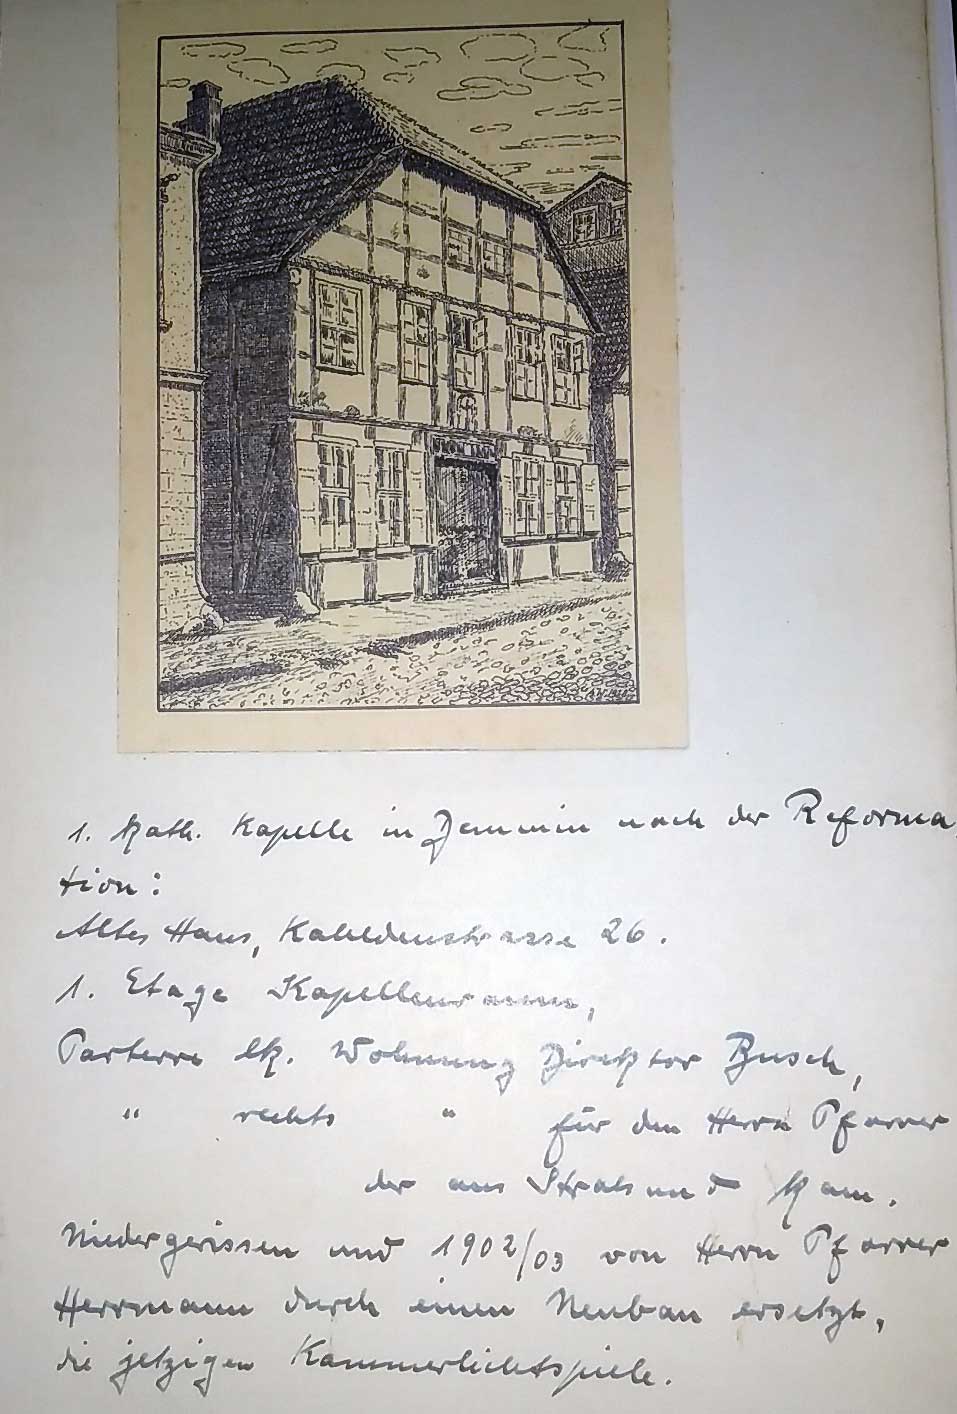 1. Kath. Kapelle in Demmin nach der Reforma
tion:
Altes Haus, Kahldenstrasse 26.
1. Etage Kapellenraum,
Parterre lk. Wohnung Direktor Busch,
" rechts " für den Herrn Pfarrer
der aus Stralsund kam.
Niedergerissen und 1902/03 von Herrn Pfarrer
Herrmann durch einen Neubau ersetzt,
die jetzigen Kammerlichtspiele.